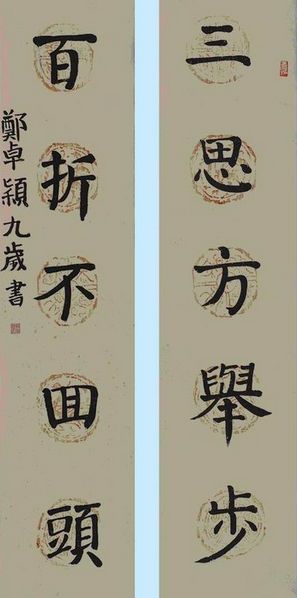 三思方舉步
百折不回頭
鄭卓穎九歲書